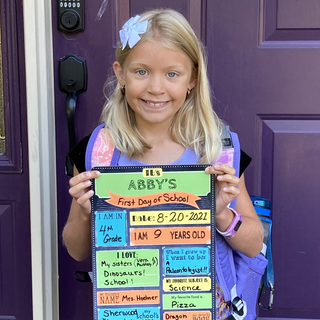 It's
ABBY'S
First Day of School
I AM IN
4th
Grade
Date: 8-20-2021
I AM 9 YEARS OLD
I LOVE:
My sisters
Dinosaurs!
School!
When I grow up
I want to be:
A
Paleontologist!!
MY FAVORITE SUBJECT IS
Science
NAME Mrs.
My favorite food is
Pizza
Sherwood
My School's
Dragon